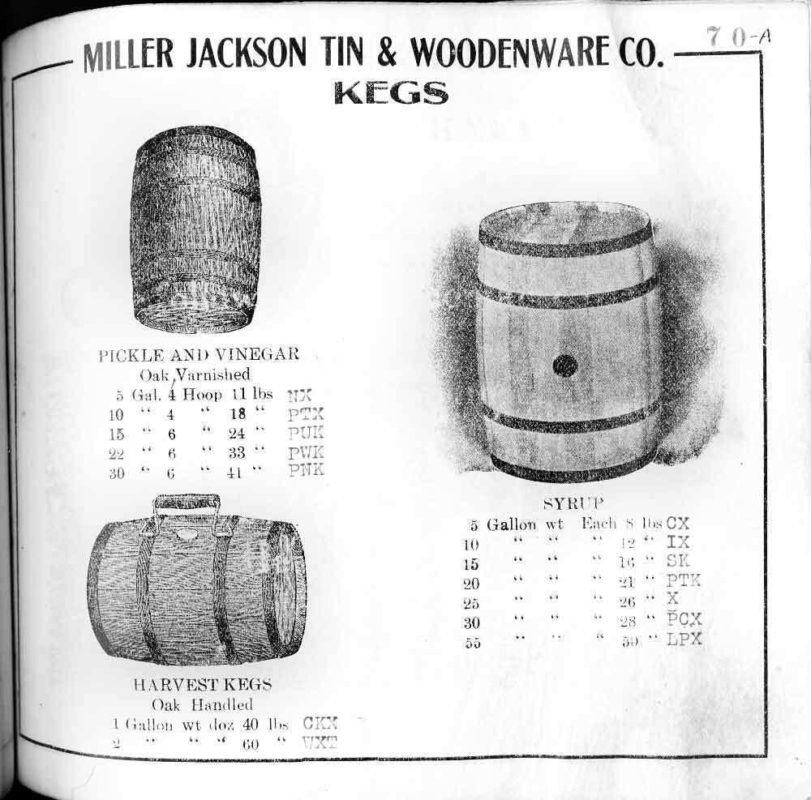 70-A
MILLER JACKSON TIN & WOODENWARE CO.
KEGS
PICKLE AND VINEGAR
Oak, Varnished
5 Gal. 4 Hoop 11 lbs NX
10 “ 4 “ 18 “ PTX
15 “ 6 “ 24 “ PUK
22 “ 6 “ 33 “ PWK
30 “ 6 “ 41 “ PNK
HARVEST KEGS
Oak Handled
1 Gallon wt doz 40 lbs CKX
2 “ “ “ 60 “ WXT
SYRUP
5 Gallon wt Each 8 lbs CX
10 “ “ “ 12 “ IX
15 “ “ “ 16 “ SK
20 “ “ “ 21 “ PTK
25 “ “ “ 26 “ X
30 “ “ “ 28 “ PCX
55 “ “ “ 59 “ LPX